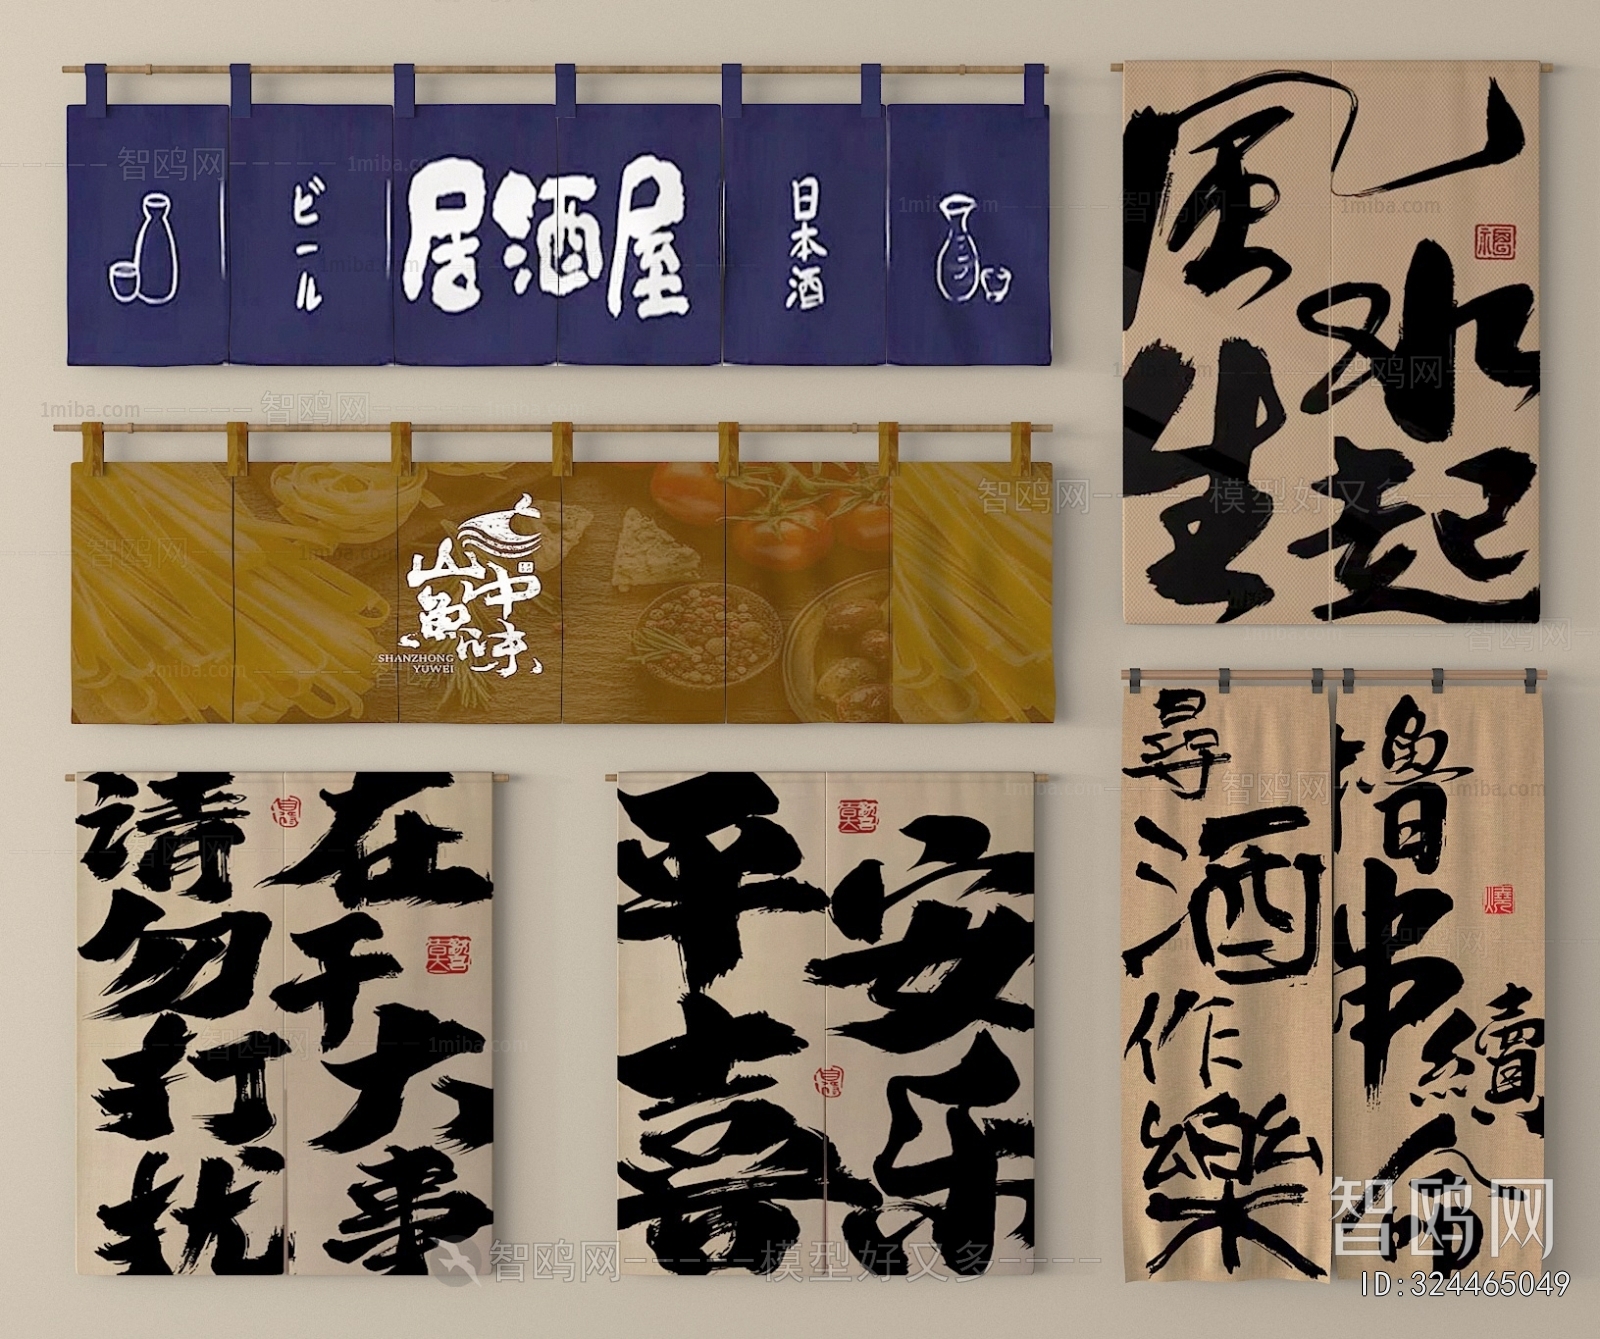 ビール
居酒屋
日本酒
山中
魚味
SHANZHONG
YUWEI
风生
水起
在干大事
请勿打扰
平安喜乐
尋酒作樂
擼串續命
智鸥网
1miba.com
模型好又多
ID:324465049